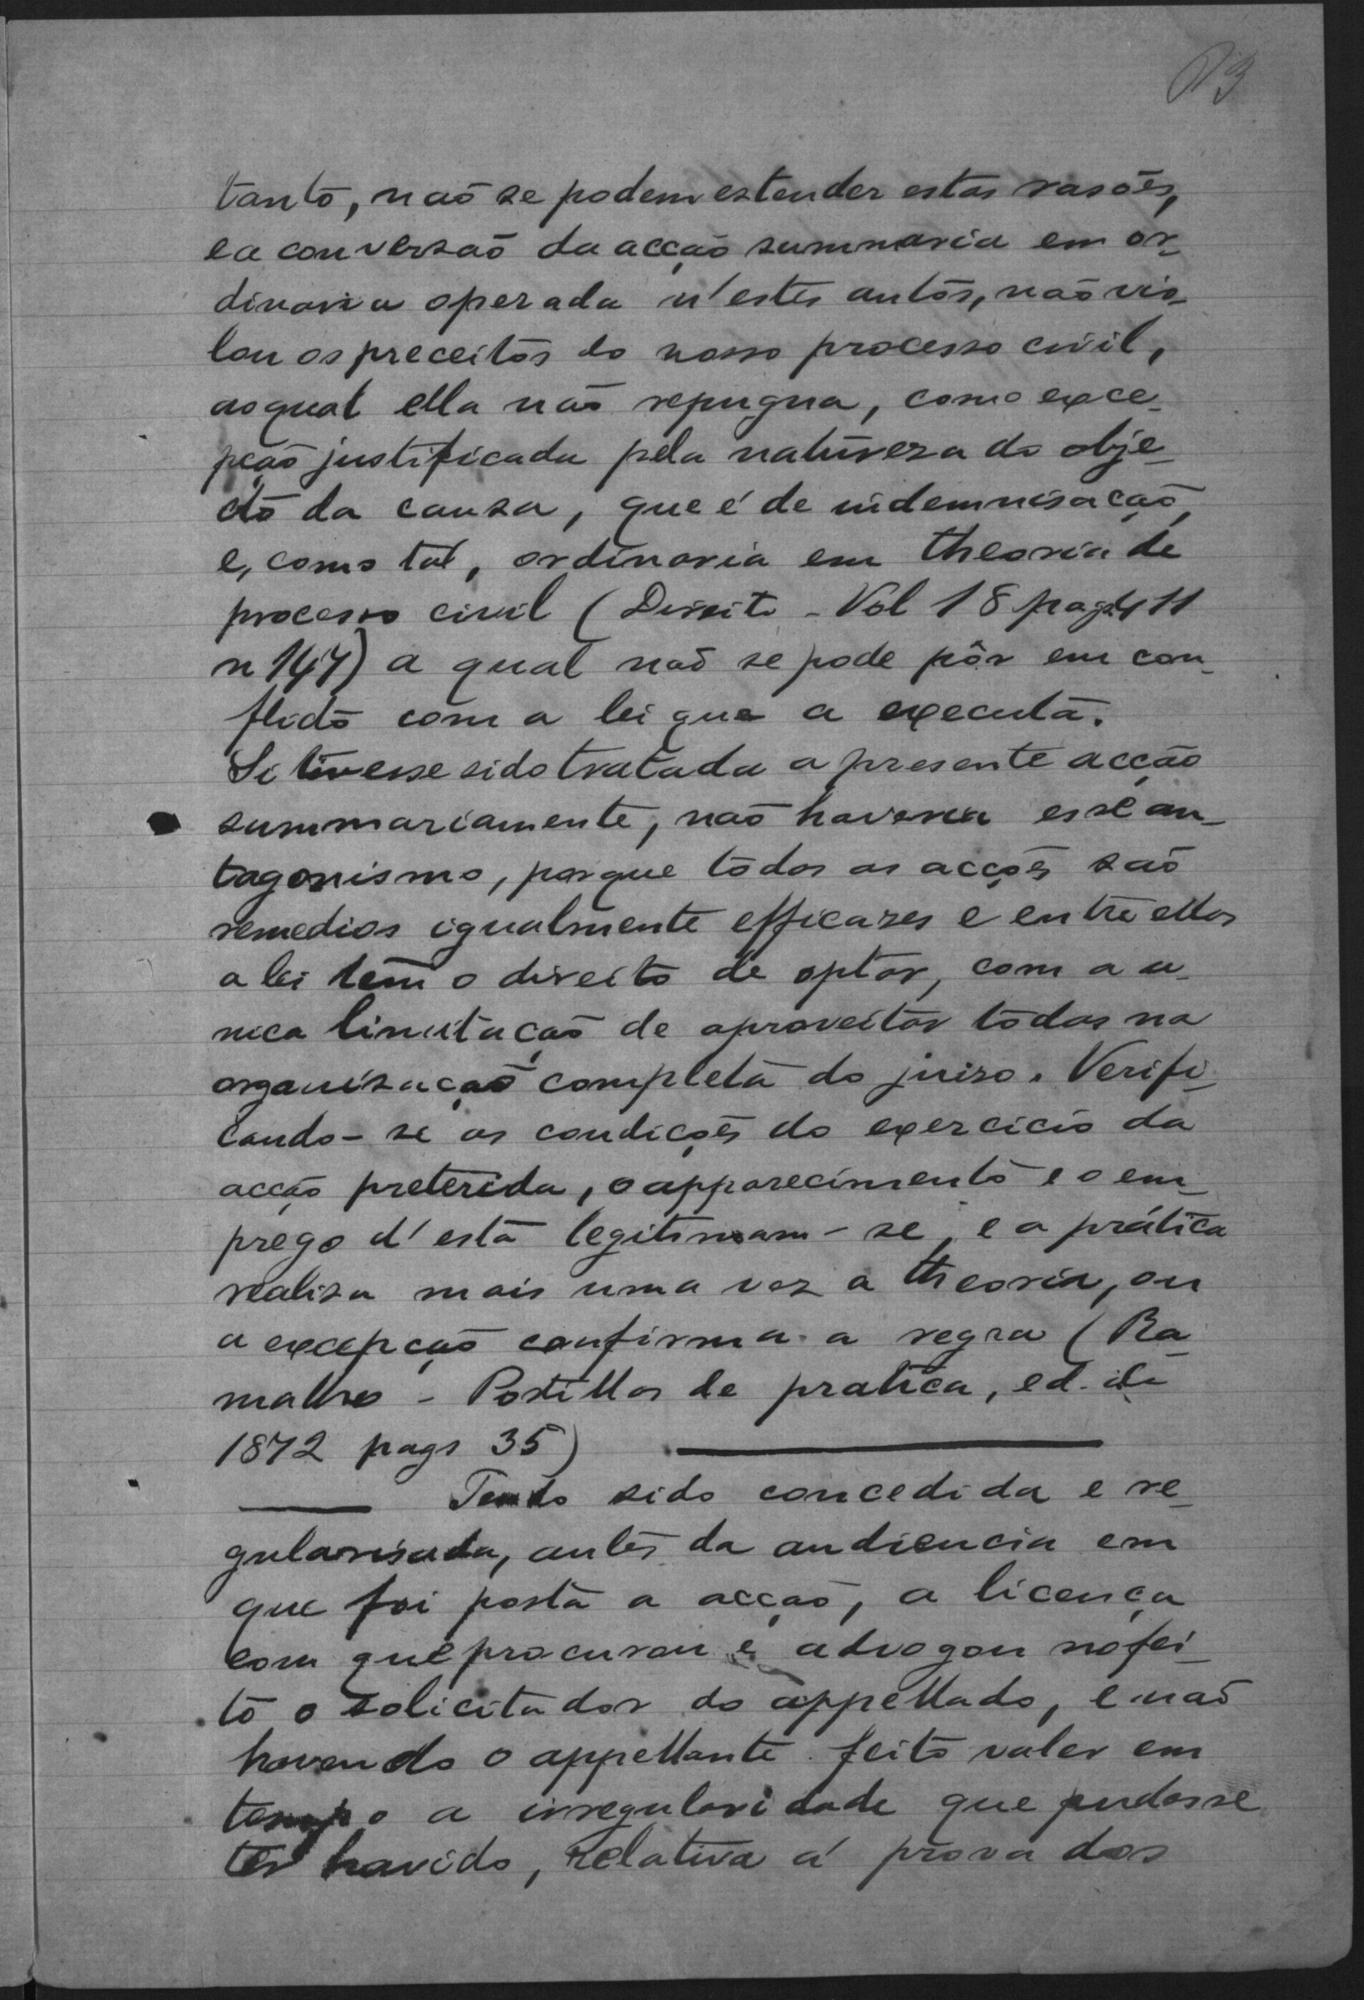 tanto, não se podem estender estas rasões,
e a conversão da acção summaria em or-
dinaria operada n'estes autos, não vio-
lou os preceitos do nosso processo civil,
ao qual ella não repugna, como exce-
pção justificada pela natureza do obje-
cto da causa, que é de indemnisação,
e, como tal, ordinaria em theoria de
processo civil (Direito - Vol 18 pags 411
n 147) a qual não se pode pôr em con-
flicto com a lei que a executa.
Si tivesse sido tratada a presente acção
summariamente, não haveria esse an-
tagonismo, porque todas as acções são
remedios igualmente efficazes e entre ellas
a lei tem o direito de optar, com a u-
nica limitação de aproveitar todas na
organisação completa do juizo. Verifi-
cando-se as condições do exercicio da
acção preterida, o apparecimento e o em-
prego d'esta legitimam-se, e a prática
realisa mais uma vez a theoria, ou
a excepção confirma a regra (Ra-
malho - Postillas de pratica, ed. de
1872 pags 35)
Tendo sido concedida e re-
gularisada, antes da audiencia em
que foi posta a acção, a licença
com que procurou e advogou no fei-
to o solicitador do appellado, e não
havendo o appellante feito valer em
tempo a irregularidade que pudesse
ter havido, relativa á prova dos